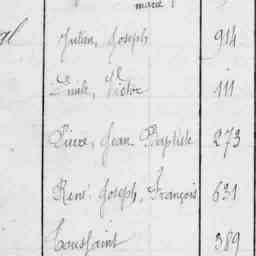 marié
Julien, Joseph 914
Emile, Victor 111
Pierre, Jean Baptiste 273
René Joseph, François 631
Toussaint 389